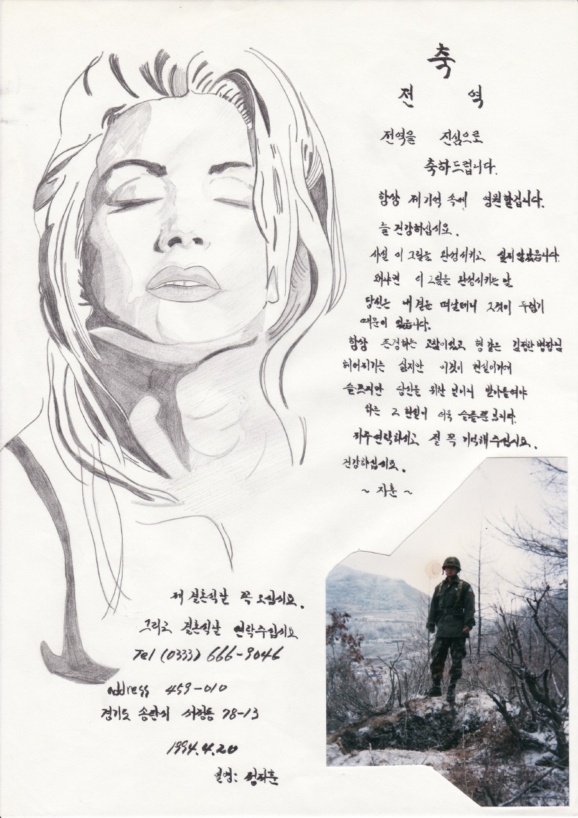 축
전 역
전역을 진심으로
축하드립니다.
항상 제 기억 속에 영원할겁니다.
늘 건강하십시요.
사실 이 그림을 완성시키고 싶지 않았습니다
왜냐면 이 그림을 완성시키는 날
당신은 내 곁은 떠날테니 그것이 두렵기
때문이 였습니다.
항상 존경하는 고참이였고 형 같은 병장님
헤어지기는 싫지만 이것이 현실이기에
슬프지만 당신을 위한 받아들여야
하는 그 현실이 더욱 슬플뿐입니다.
자주연락하시고 절 꼭 기억해 주십시요.
건강하십시요.
~ 지훈 ~
제 결혼식날 꼭 오십시요.
그리고 결혼식날 연락주십시요
Tel (0333) 666-9046
address 459-010
경기도 송탄시 서정동 78-13
1994.4.20
일병: